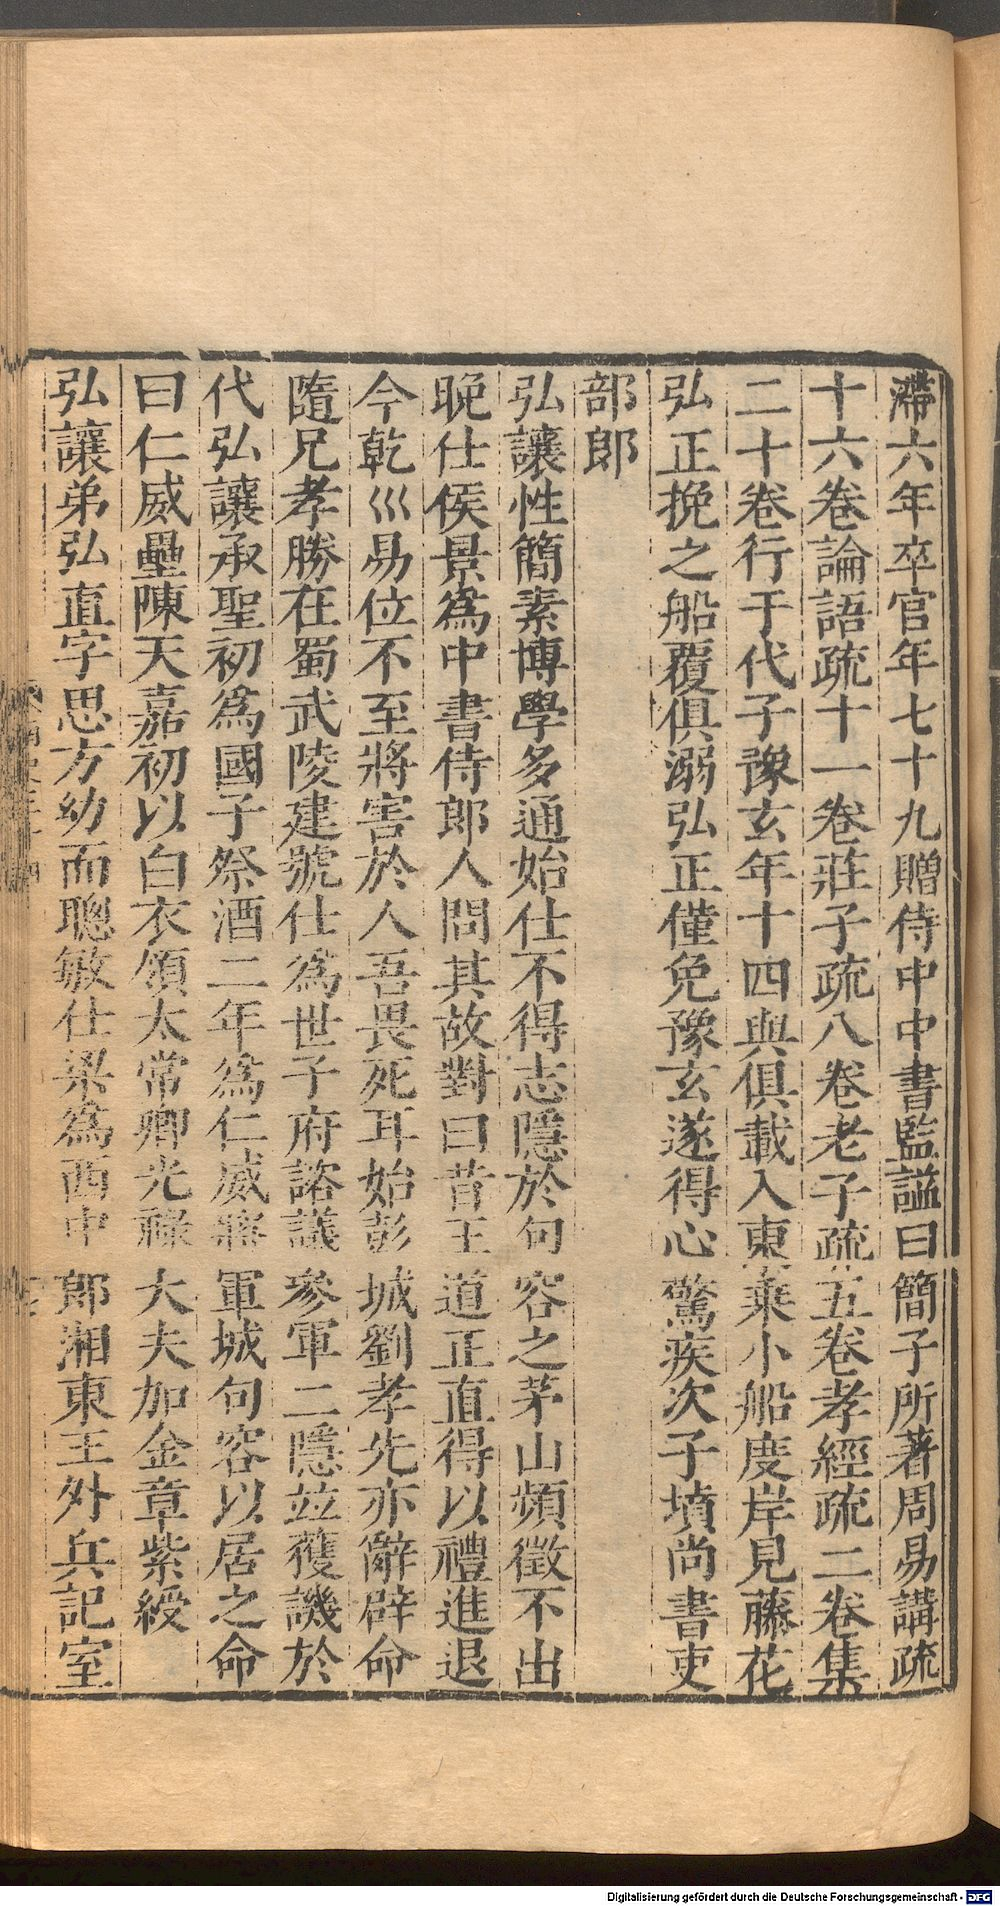 滯六年卒官年七十九贈侍中中書監謚曰簡子所著周易講疏
十六卷論語疏十一卷莊子疏八卷老子疏五卷孝經疏二卷集
二十卷行于代子豫玄年十四與俱載入東乗小船度岸見藤花
弘正挽之船覆俱溺弘正僅免豫玄遂得心驚疾次子墳尚書吏
部郎
弘讓性簡素博學多通始仕不得志隱於句容之茅山頻徵不出
晚仕侯景為中書侍郎人問其故對曰昔王道正直得以禮進退
今乾巛易位不至將害於人吾畏死耳始彭城劉孝先亦辭辟命
隨兄孝勝在蜀武陵建號仕為世子府諮議參軍二隱竝獲譏於
代弘讓承聖初為國子祭酒二年為仁威將軍城句容以居之命
曰仁威壘陳天嘉初以白衣領太常卿光祿大夫加金章紫綬
弘讓弟弘直字思方幼而聰敏仕梁為西中郎湘東王外兵記室
Digitalisierung gefördert durch die Deutsche Forschungsgemeinschaft - DFG